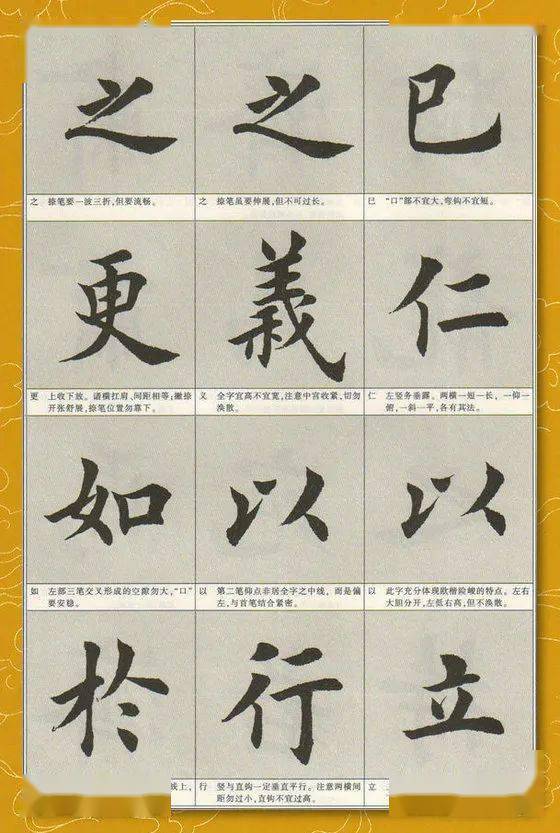 之 之 巳
之 捺笔要一波三折,但要流畅。
之 捺笔虽要伸展,但不可过长。
巳 “口”部不宜大,弯钩不宜短。
更 義 仁
更 上收下放。诸横扛肩、间距相等;撇捺
开张舒展,捺笔位置勿靠下。
义 全字宜高不宜宽,注意中宫收紧,切勿
涣散。
仁 左竖务垂露。两横一短一长,一仰一
俯,一斜一平,各有其法。
如 以 以
如 左部三笔交叉形成的空隙勿大,“口”
要安稳。
以 第二笔仰点非居全字之中线,而是偏
左,与首笔结合紧密。
以 此字充分体现欧楷险峻的特点。左右
大胆分开,左低右高,但不涣散。
於 行 立
上,
行 竖与直钩一定垂直平行。注意两横间
距勿过小,直钩不宜过高。
立